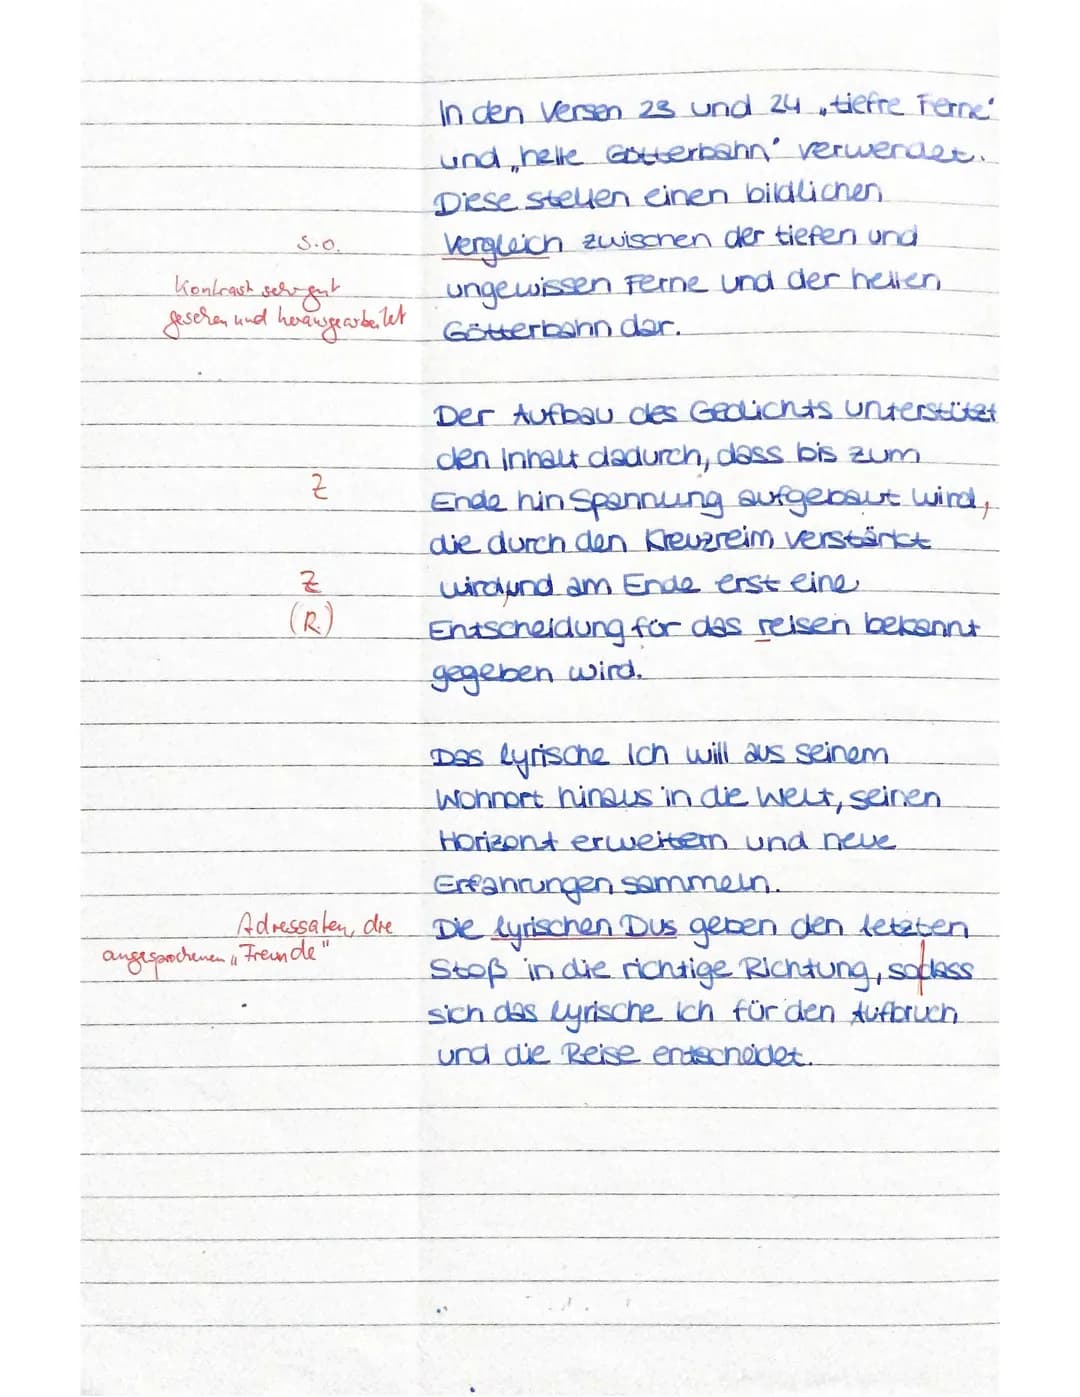 In den Versen 23 und 24 „tiefre Ferne"
und „helle Götterbahn" verwendet.
Diese stellen einen bildlichen
s.o. Vergleich zwischen der tiefen und
Kontrast sehr gut ungewissen Ferne und der hellen
gesehen und herausgearbeitet Götterbahn dar.
Der Aufbau des Gedichts unterstützt
den Inhalt dadurch, dass bis zum
Z Ende hin Spannung aufgebaut wird,
die durch den Kreuzreim verstärkt
Z wird, und am Ende erst eine
(R.) Entscheidung für das reisen bekannt
gegeben wird.
Das lyrische Ich will aus seinem
Wohnort hinaus in die Welt, seinen
Horizont erweitern und neue
Erfahrungen sammeln.
Adressaten, die Die lyrischen Dus geben den letzten
angesprochenen „Freunde" Stoß in die richtige Richtung, sodass
sich das lyrische Ich für den Aufbruch
und die Reise entscheidet.